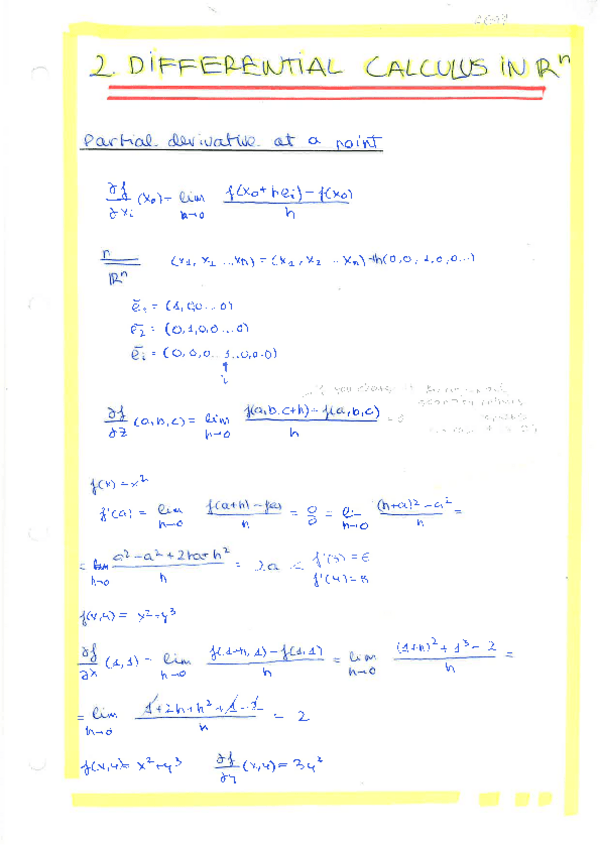 2. DIFFERENTIAL CALCULUS IN Rⁿ
Partial derivative at a point
∂f/∂xᵢ (x₀) = lim h→0 (f(x₀+heᵢ) - f(x₀))/h
n/Rⁿ (x₁, x₁ ...xₙ) = (x₁, x₂ ... xₙ) + h(0,0,1,0,0...)
ē₁ = (1,0,0...0)
ē₂ = (0,1,0,0...0)
ēᵢ = (0,0,0...1..0,0..0)
↑
i
∂f/∂z (a,b,c) = lim h→0 (f(a,b,c+h) - f(a,b,c))/h
f(x) = x²
f'(a) = lim h→0 (f(a+h) - f(a))/h = 0/0 = lim h→0 ((h+a)² - a²)/h =
= lim h→0 (a² - a² + 2ha + h²)/h = 2a < f'(3) = 6
f'(4) = 8
f(x,y) = x²+y³
∂f/∂x (1,1) = lim h→0 (f(1+h, 1) - f(1,1))/h = lim h→0 ((1+h)² + 1³ - 2)/h =
= lim h→0 (1+2h+h²+1-2)/h = 2
f(x,y) = x²+y³ ∂f/∂y (x,y) = 3y²